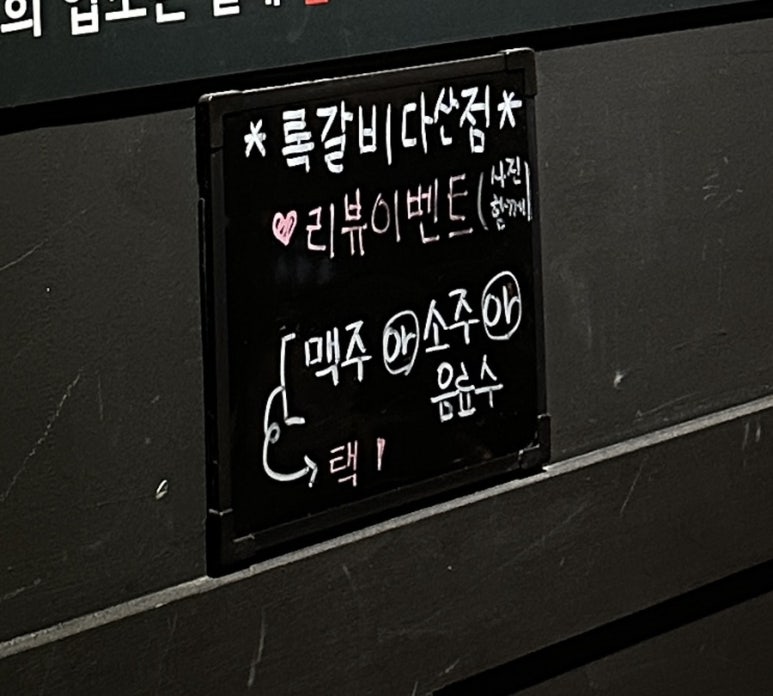 *록갈비다산점*
♥리뷰이벤트(사진함께)
맥주 or 소주 or
음료수
택1